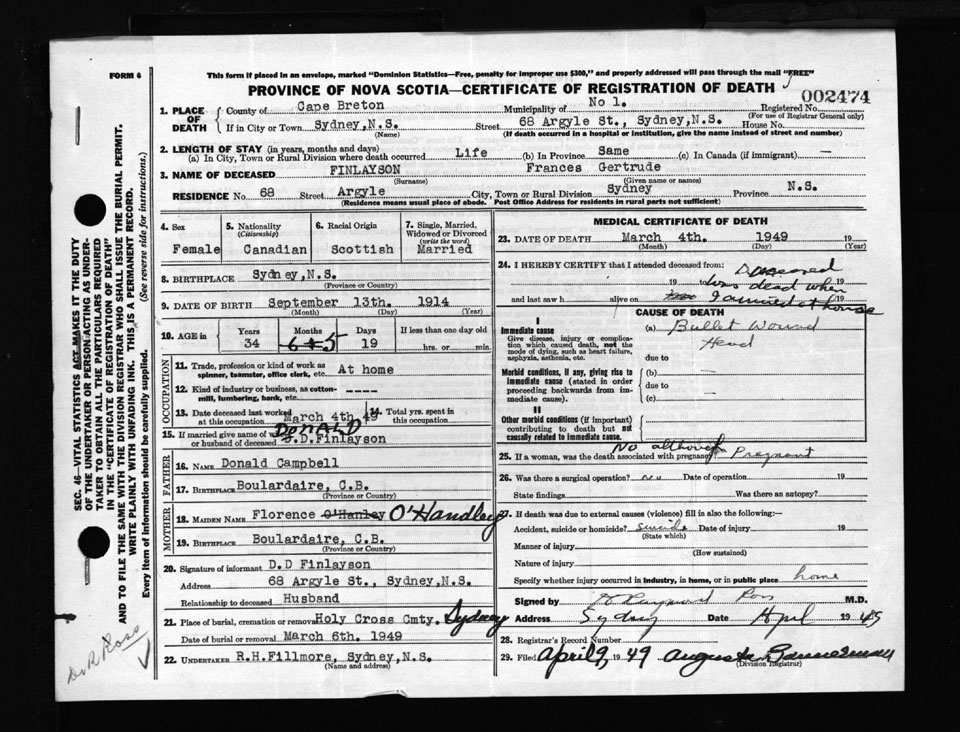 FORM 6
This form if placed in an envelope, marked "Dominion Statistics—Free, penalty for improper use $300," and properly addressed will pass through the mail "FREE"
PROVINCE OF NOVA SCOTIA—CERTIFICATE OF REGISTRATION OF DEATH
002474
1. PLACE OF DEATH
County of Cape Breton Municipality of No 1. Registered No.
(For use of Registrar General only)
If in City or Town Sydney,N.S. Street 68 Argyle St., Sydney,N.S. House No.
(Name) (If death occurred in a hospital or institution, give the name instead of street and number)
2. LENGTH OF STAY (in years, months and days)
(a) In City, Town or Rural Division where death occurred Life (b) In Province Same (c) In Canada (if immigrant) —
3. NAME OF DECEASED FINLAYSON Frances Gertrude
(Surname) (Given name or names)
RESIDENCE No. 68 Street Argyle City, Town or Rural Division Sydney Province N.S.
(Residence means usual place of abode. Post Office Address for residents in rural parts not sufficient)
4. Sex
Female
5. Nationality
(Citizenship)
Canadian
6. Racial Origin
Scottish
7. Single, Married, Widowed or Divorced
(write the word)
Married
8. BIRTHPLACE Sydney,N.S.
(Province or Country)
9. DATE OF BIRTH September 13th. 1914
(Month) (Day) (Year)
10. AGE in
Years Months Days If less than one day old
34 6 5 19 hrs. or min.
OCCUPATION
11. Trade, profession or kind of work as spinner, teamster, office clerk, etc. At home
12. Kind of industry or business, as cotton-mill, lumbering, bank, etc. -----
13. Date deceased last worked at this occupation March 4th 49
14. Total yrs. spent in this occupation
15. If married give name of wife or husband of deceased DONALD D.Finlayson
FATHER
16. NAME Donald Campbell
17. BIRTHPLACE Boulardaire, C.B.
(Province or Country)
MOTHER
18. MAIDEN NAME Florence O'Hanley O'Handley
19. BIRTHPLACE Boulardaire, C.B.
(Province or Country)
20. Signature of informant D.D Finlayson
Address 68 Argyle St., Sydney,N.S.
Relationship to deceased Husband
21. Place of burial, cremation or removal Holy Cross Cmty. Sydney
Date of burial or removal March 6th. 1949
22. UNDERTAKER R.H.Fillmore, Sydney,N.S.
(Name and address)
MEDICAL CERTIFICATE OF DEATH
23. DATE OF DEATH March 4th. 1949 19
(Month) (Day) (Year)
24. I HEREBY CERTIFY that I attended deceased from: Deceased
19 was dead when 19
and last saw h alive on I arrived at house 19
CAUSE OF DEATH
I
Immediate cause
Give disease, injury or complication which caused death, not the mode of dying, such as heart failure, asphyxia, asthenia, etc.
(a) Bullet Wound
Head
due to
Morbid conditions, if any, giving rise to immediate cause (stated in order proceeding backwards from immediate cause).
(b) —
due to
(c) —
II
Other morbid conditions (if important) contributing to death but not causally related to immediate cause.
25. If a woman, was the death associated with pregnancy? No although Pregnant
26. Was there a surgical operation? no Date of operation 19
State findings Was there an autopsy?
27. If death was due to external causes (violence) fill in also the following:—
Accident, suicide or homicide? suicide Date of injury 19
(State which)
Manner of injury
(How sustained)
Nature of injury
Specify whether injury occurred in industry, in home, or in public place home
Signed by Raymond Ross M.D.
Address Sydney Date April 1949
28. Registrar's Record Number
29. Filed April 9, 1949 Augusta Bannerman
(Division Registrar)
SEC. 46—VITAL STATISTICS ACT MAKES IT THE DUTY
OF THE UNDERTAKER OR PERSON ACTING AS UNDER-
TAKER TO OBTAIN ALL THE PARTICULARS REQUIRED
IN THE "CERTIFICATE OF REGISTRATION OF DEATH"
AND TO FILE THE SAME WITH THE DIVISION REGISTRAR WHO SHALL ISSUE THE BURIAL PERMIT.
WRITE PLAINLY WITH UNFADING INK. THIS IS A PERMANENT RECORD.
Every item of information should be carefully supplied. (See reverse side for instructions.)
Dr R Ross